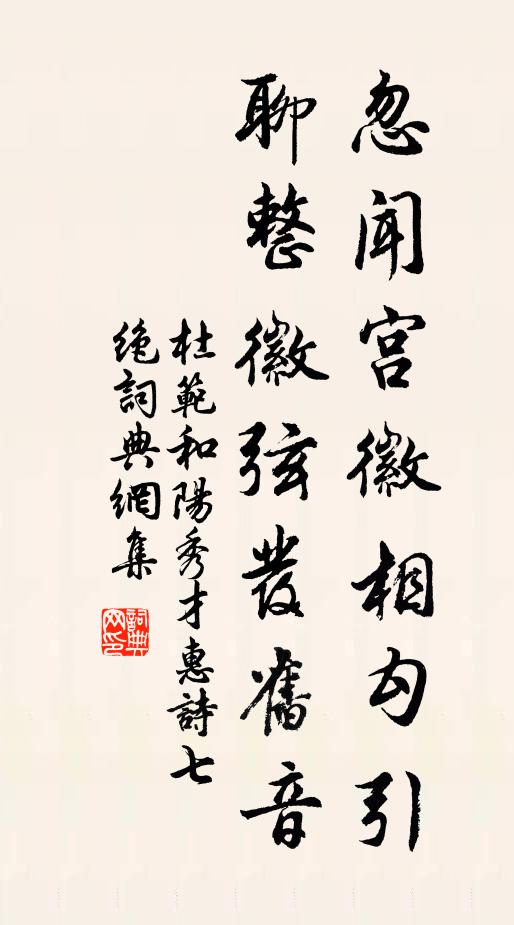 忽闻宫徽相勾引
聊整徽弦發舊音
杜範和陽秀才惠詩七
絶詞典網集
詞典
网印